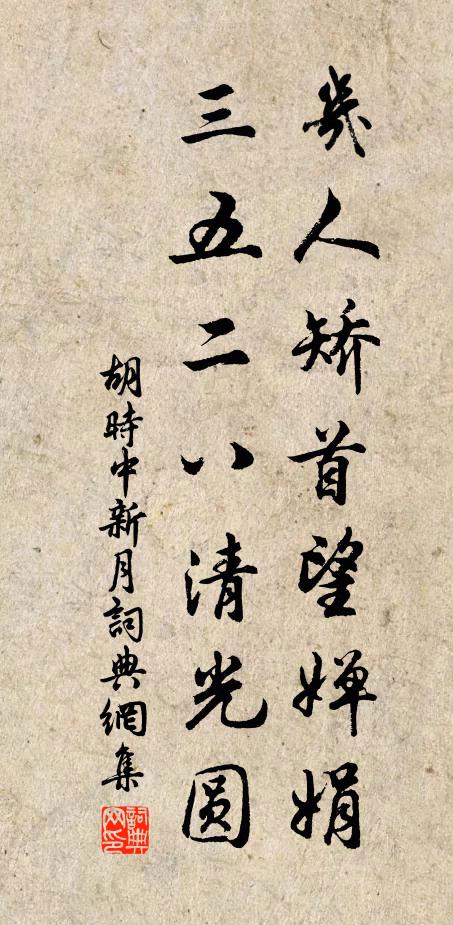 幾人矯首望嬋娟
三五二八清光圓
胡時中新月詞典網集
詞典网印